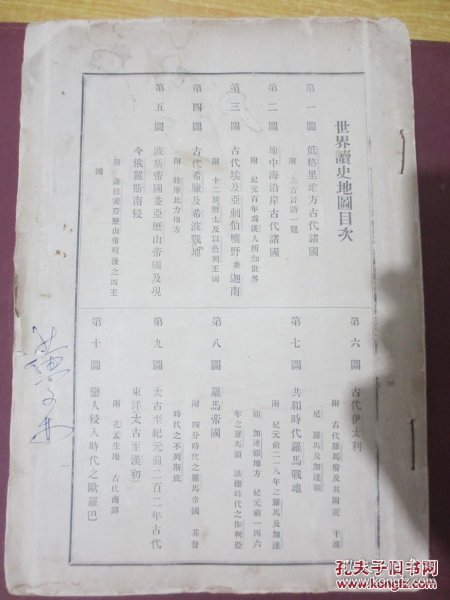 世界讀史地圖目次
第一圖 低格里地方古代諸國
附 上古言語一覽
第二圖 地中海沿岸古代諸國
附 紀元百年爲漢人所知世界
第三圖 古代埃及亞剌伯曠野並迦南
附 十二列士及以色列王國
第四圖 古代希臘及希波戰地
附 特摩比力地方
第五圖 波斯帝國並亞歷山帝國及現
今俄羅斯南侵
附 亞歷山帝歿後之四王
國
第六圖 古代伊太利
附 古代羅馬府及其附近
尼 羅馬及加達額
第七圖 共和時代羅馬戰地
附 紀元前二一八年之羅馬及加達
額 加達額地方 紀元前一四六
年之羅馬領 該撒時代之伽利亞
第八圖 羅馬帝國
附 四分時代之羅馬帝國 基督
時代之不列斯底
第九圖 太古至紀元前二百二年古代
東洋太古至漢初
附 孔孟生地 古代商路
第十圖 蠻人侵入時代之歐羅巴
孔夫子旧书网